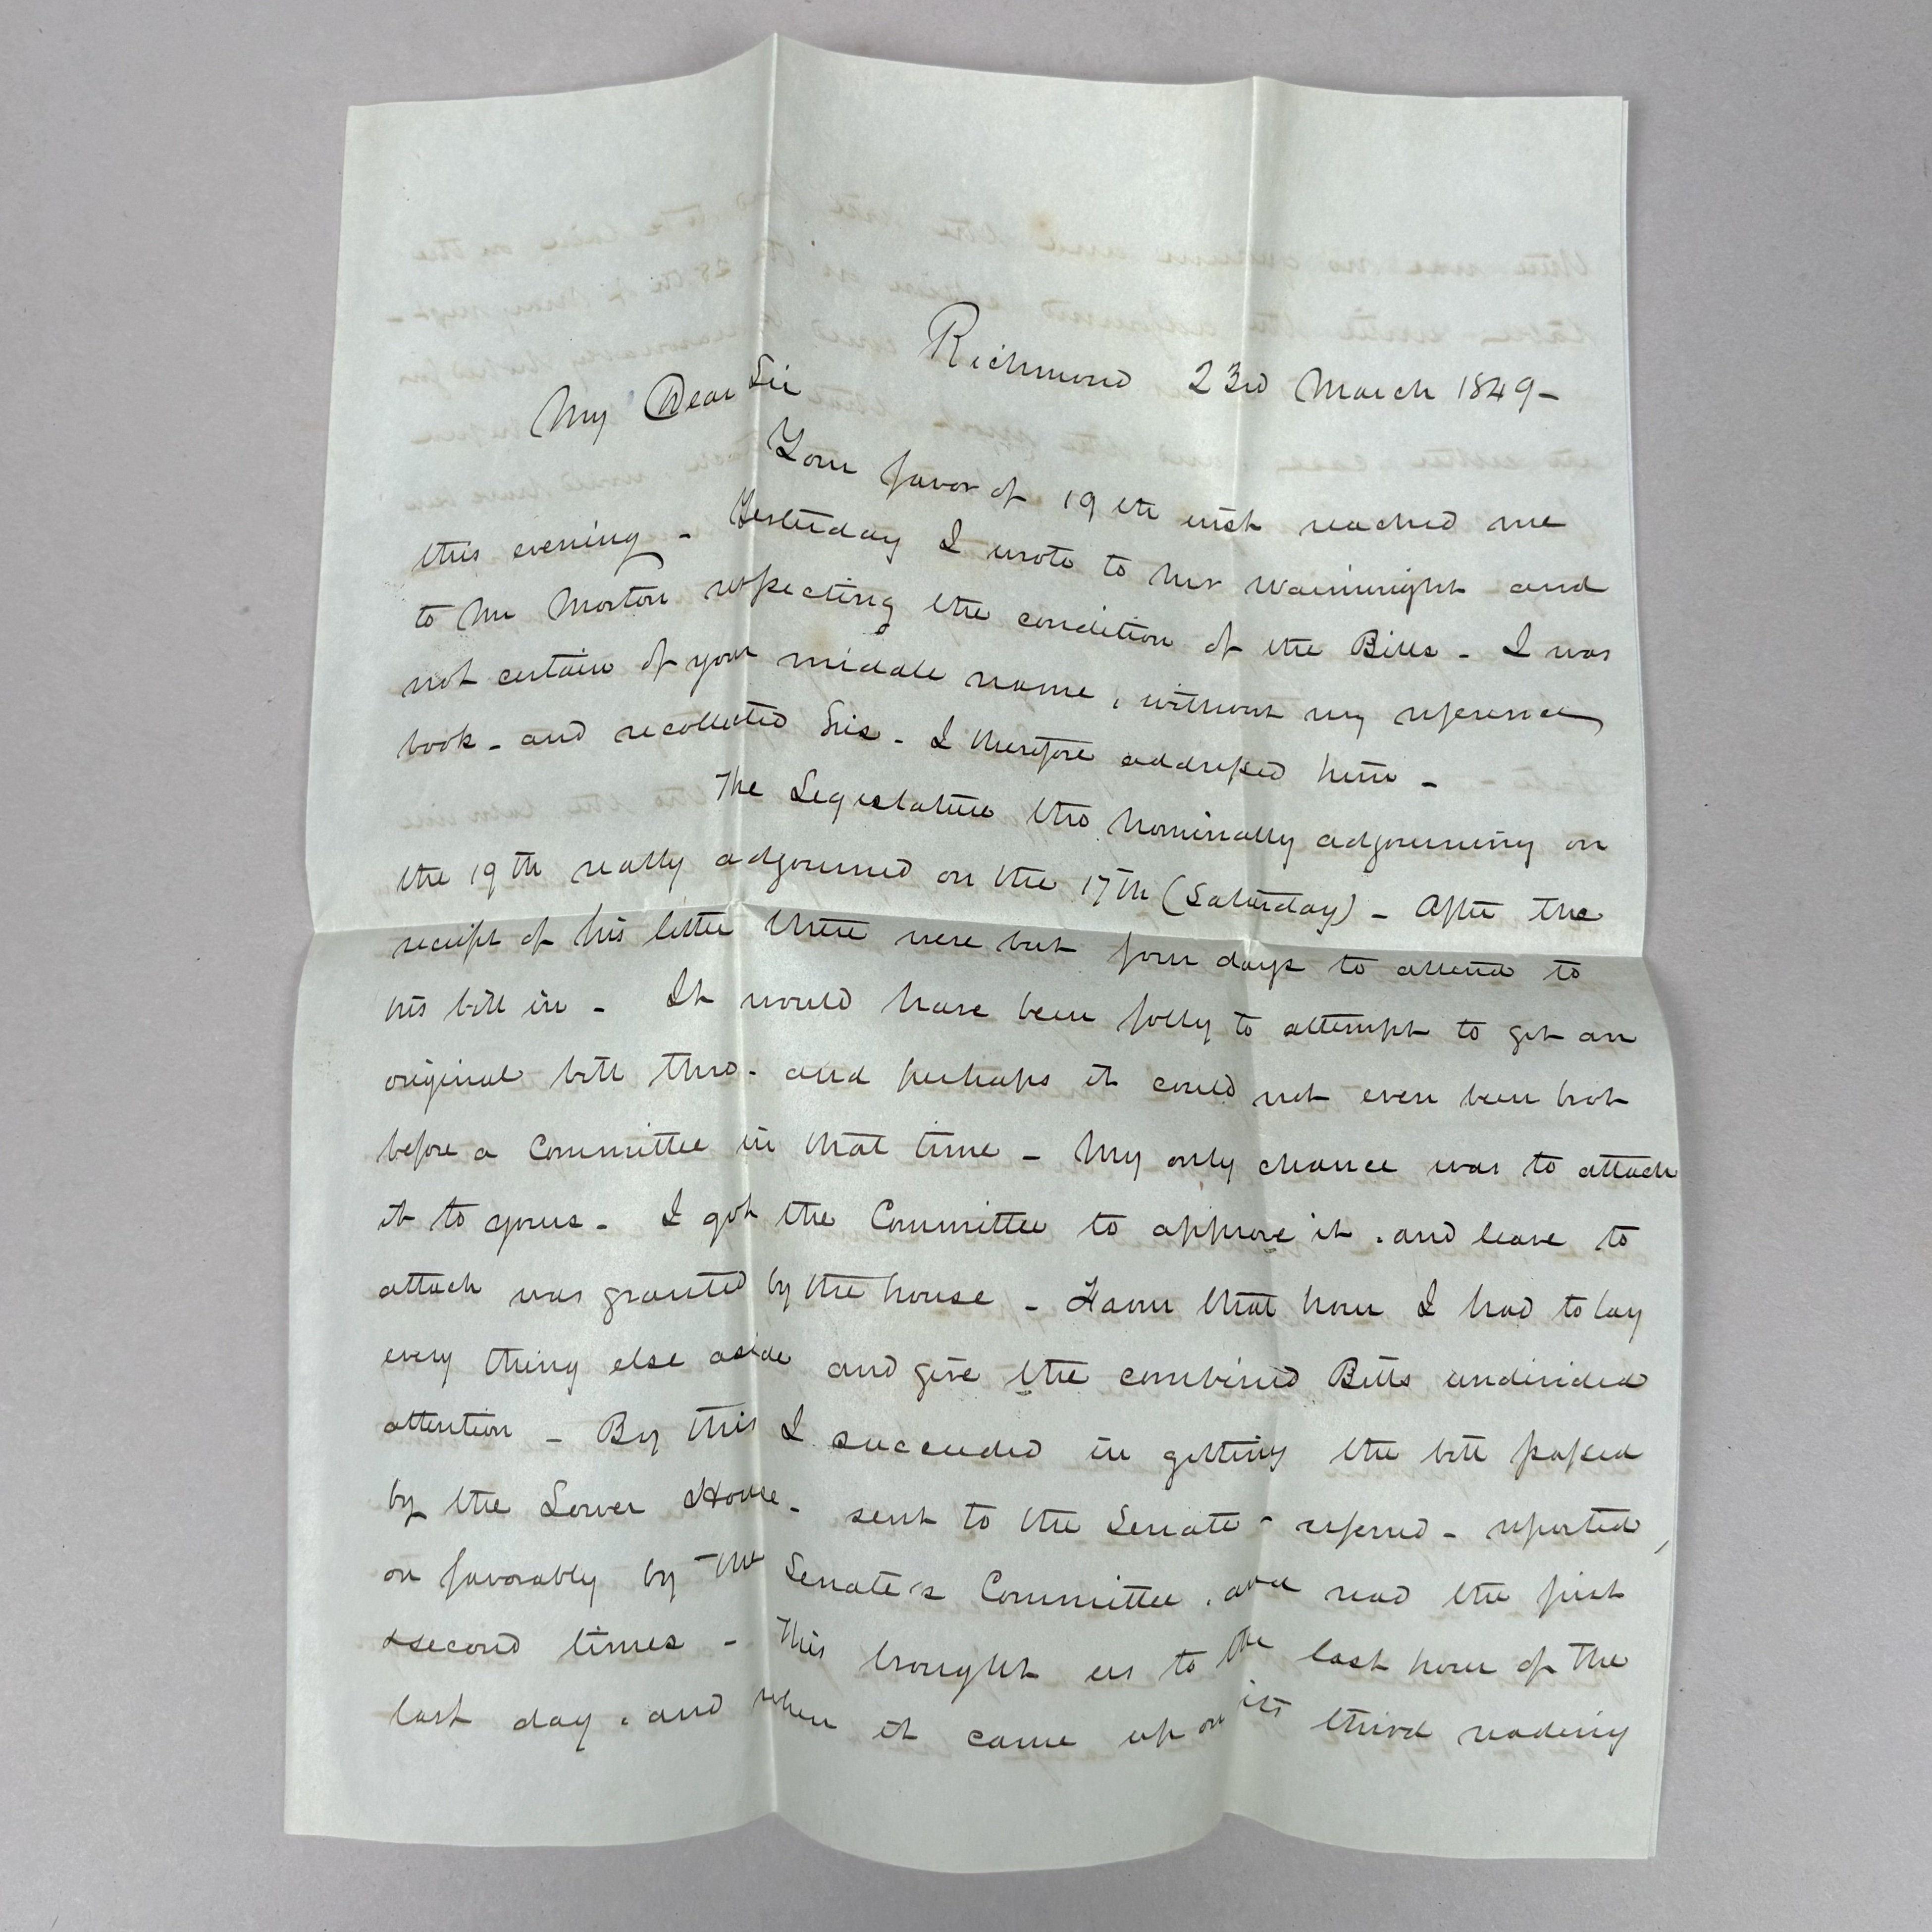 Richmond 23rd March 1849 -
My Dear Sir
Your favor of 19th inst reached me
this evening - Yesterday I wrote to Mr Wainwright and
to Mr Morton respecting the condition of the Bills - I was
not certain of your middle name, without my reference
book - and recollected his - I therefore addressed him -
The Legislature tho nominally adjourning on
the 19th really adjourned on the 17th (Saturday) - After the
receipt of his letter there were but four days to attend to
his bill in - It would have been folly to attempt to get an
original bill thro - and perhaps it could not even been brot
before a Committee in that time - My only chance was to attach
it to yours - I got the Committee to approve it, and leave to
attach was granted by the house - From that hour I had to lay
every thing else aside and give the combined Bills undivided
attention - By this I succeeded in getting the bill passed
by the Lower House - sent to the Senate - referred - reported,
on favorably by the Senate's Committee, and read the first
& second times - This brought us to the last hour of the
last day, and when it came up on its third reading